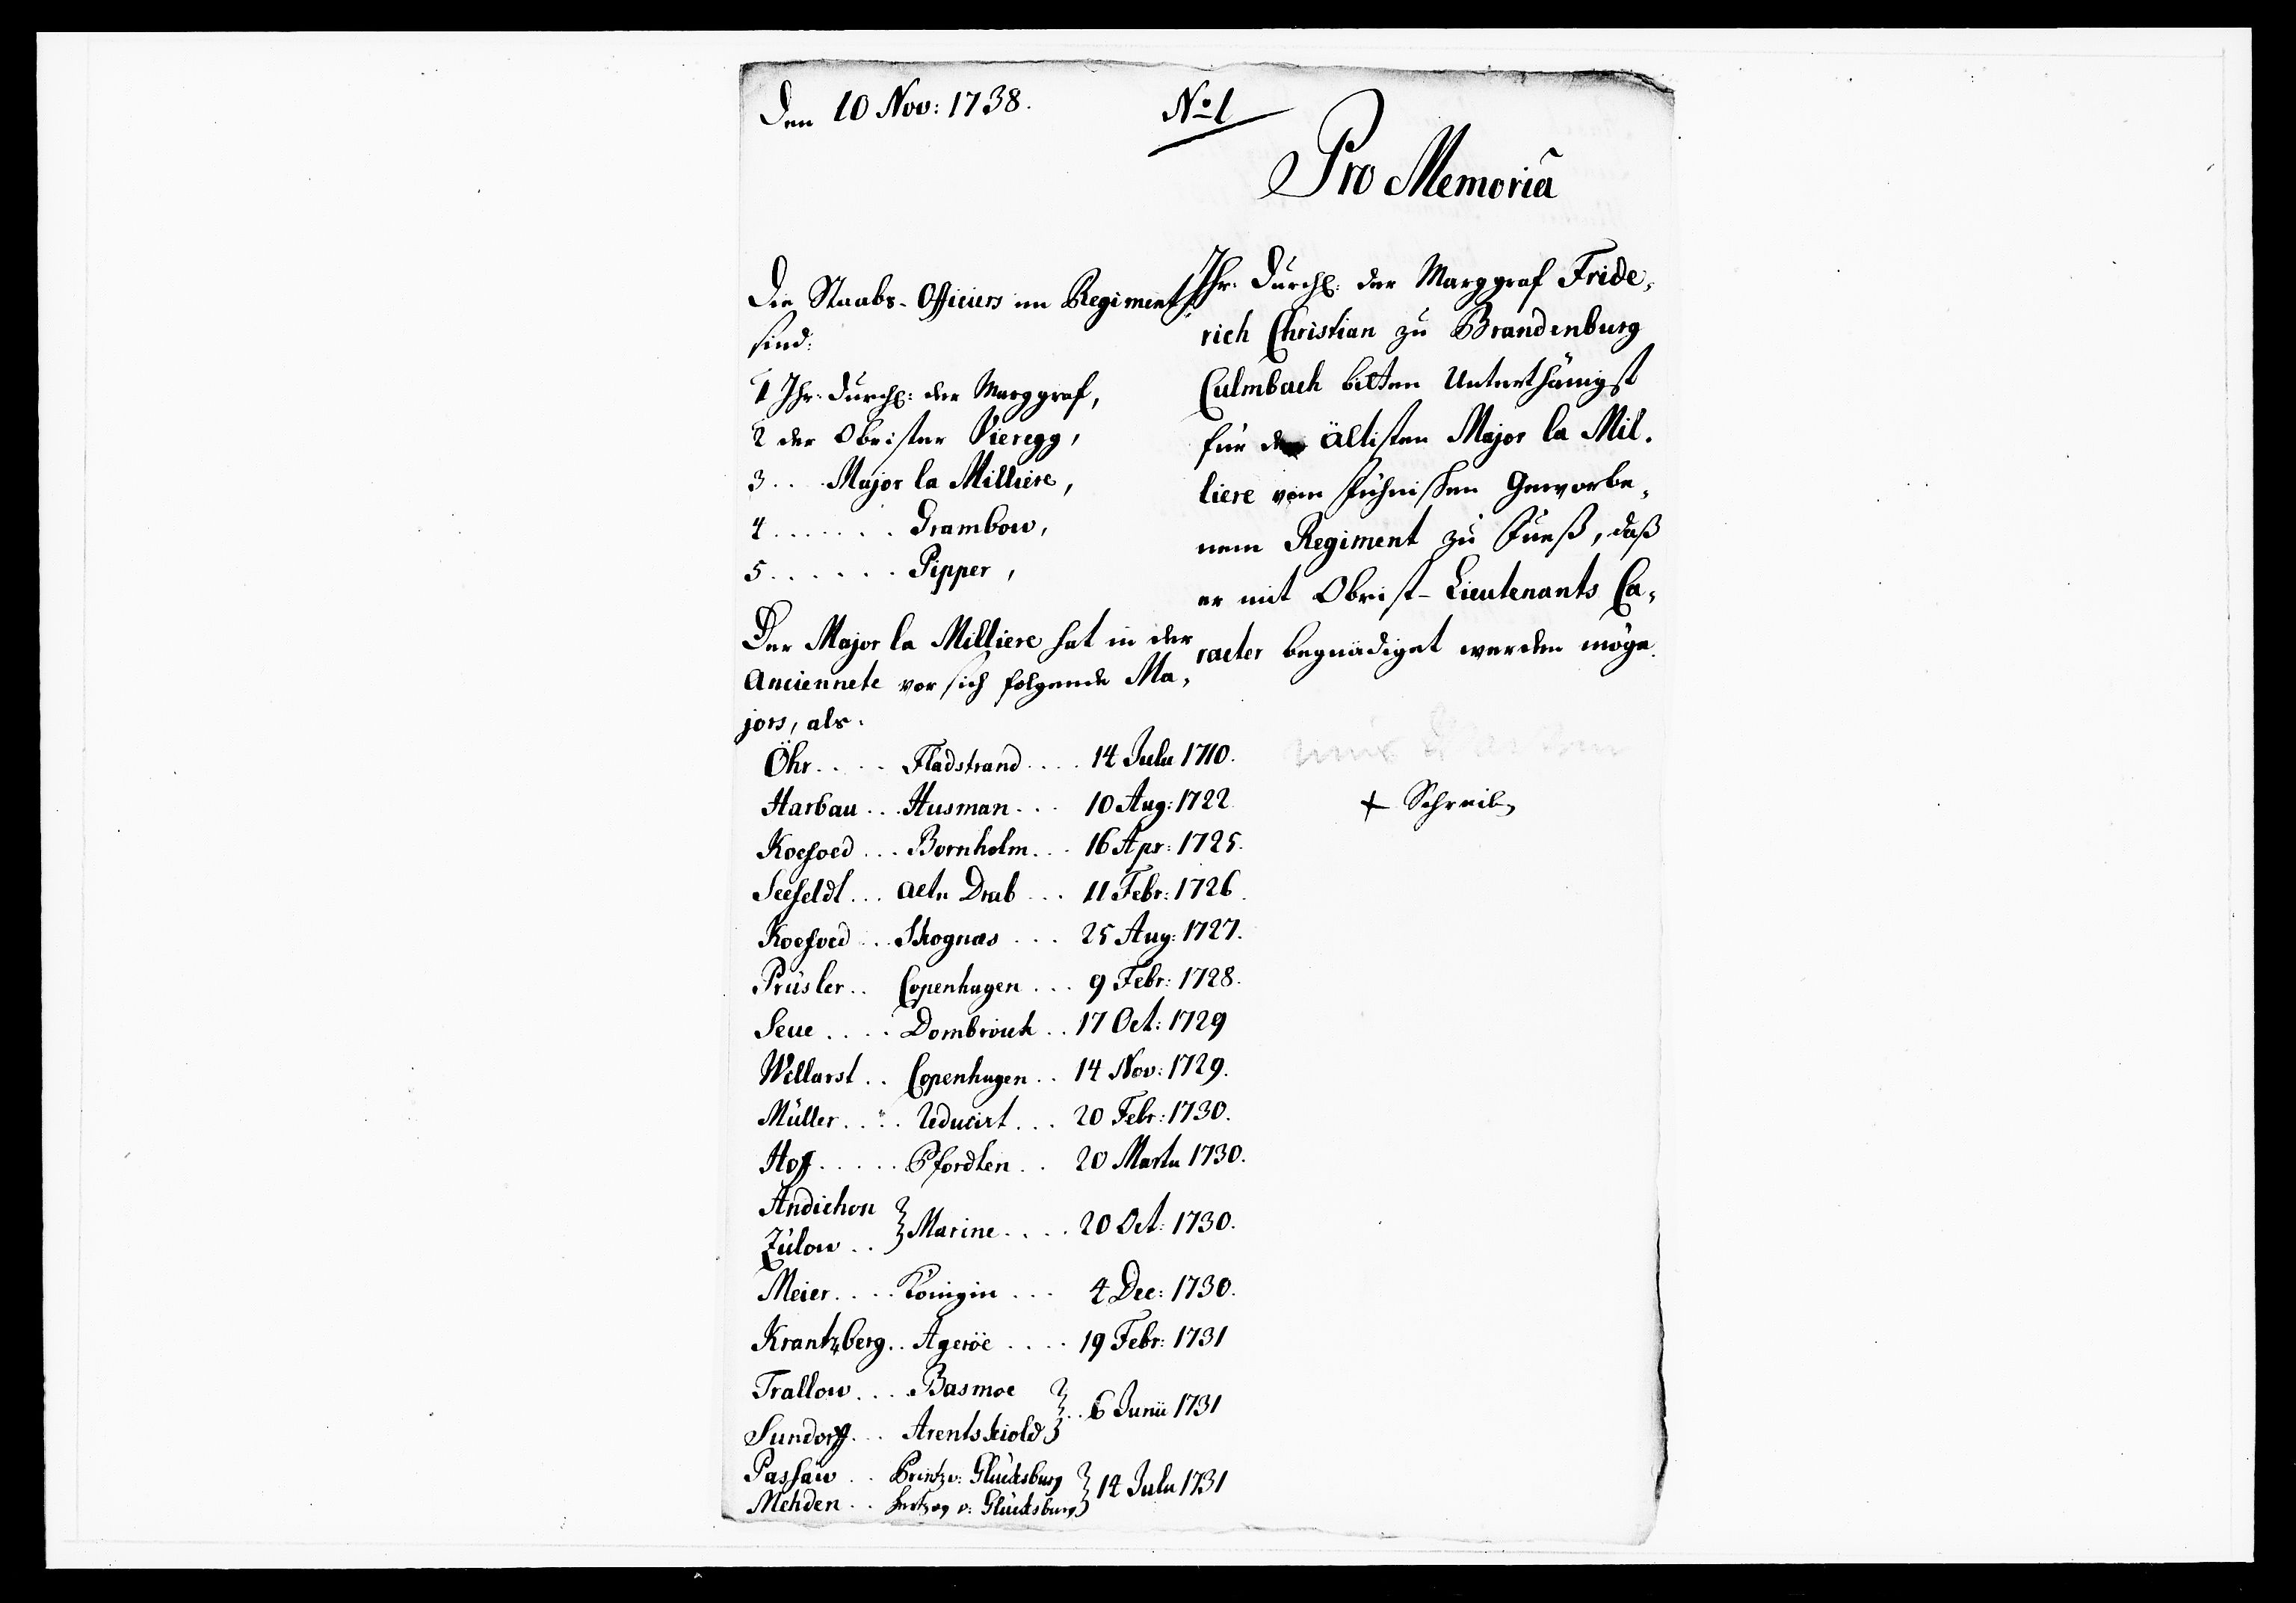 Den 10 Nov: 1738.
No 1
Pro Memoriã
Ihr. Durchl: der Marggraf Fride,
rich Christian zu Brandenburg
Culmbach bitten Unterthänigst
für den ältisten Major la Mil.
liere vom Fühnischen Geworbe,
nem Regiment zu Fuess, dass
er mit Obrist-Lieutenants Ca,
racter begnadiget werden möge.
+ Schreib
Die Staabs-Officiers im Regiment
sind:
1 Ihr. Durchl: der Marggraf,
2 der Obrister Vieregg,
3 . . . Major la Milliere,
4 . . . . . . Drambow,
5 . . . . . . Pipper,
Der Major la Milliere hat in der
Anciennete vor sich folgende Ma,
jors, als.
Öhr . . . . Fladstrand . . . . 14 Julii 1710.
Harbau . . . Husman . . . 10 Aug: 1722
Koefoed . . . Bornholm . . . 16 Apr: 1725.
Seefeldt . . . Drab . . . 11 Febr: 1726.
Koefoed . . Skognæs . . . 25 Aug: 1727.
Prüsler . . Copenhagen . . . 9 Febr: 1728.
Seue . . . . Dombrouck . . 17 Oct: 1729
Willarst . . Copenhagen . . 14 Nov: 1729.
Müller . . . . Reducirt . . . 20 Febr: 1730.
Hoff . . . . . Pfordten . . 20 Martii 1730.
Andichon
Zülow . . } Marine . . . . 20 Oct: 1730.
Meier . . . . Königin . . . 4 Dec: 1730.
Krantzberg . . Ageröe . . . . 19 Febr: 1731
Trallow . . . . Basmoe
Sundorff . . . Arentskiold } . . 6 Junii 1731
Passau . . Printz v: Glücksburg
Mehden . . Hertzog v: Glücksburg } 14 Julii 1731